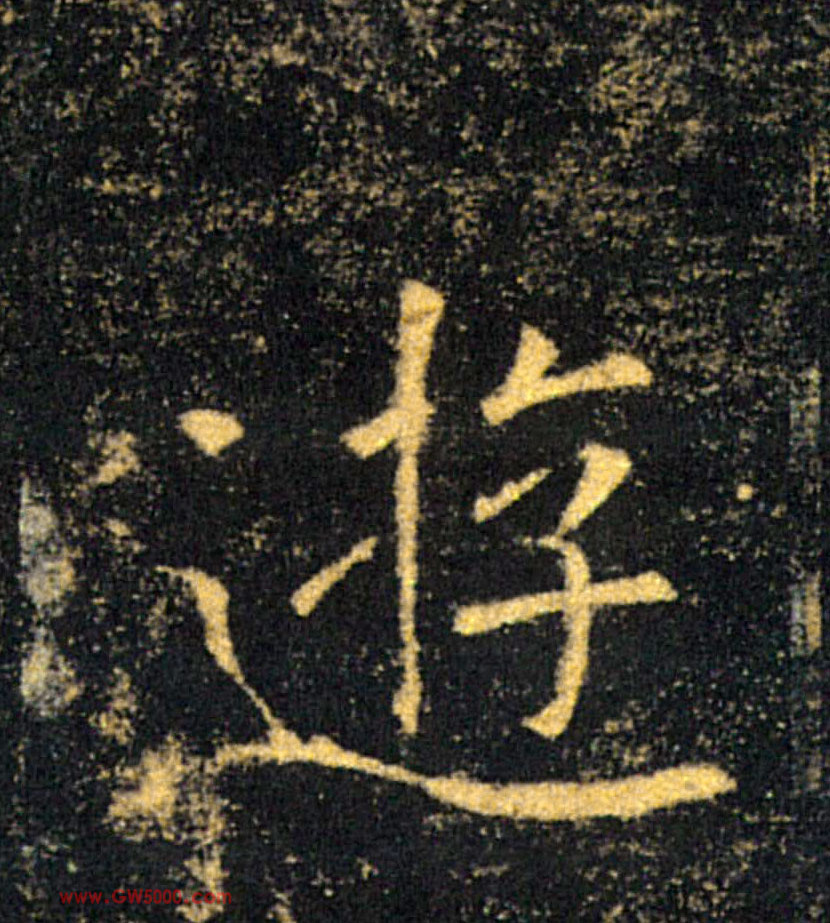 遊
www.GW5000.com